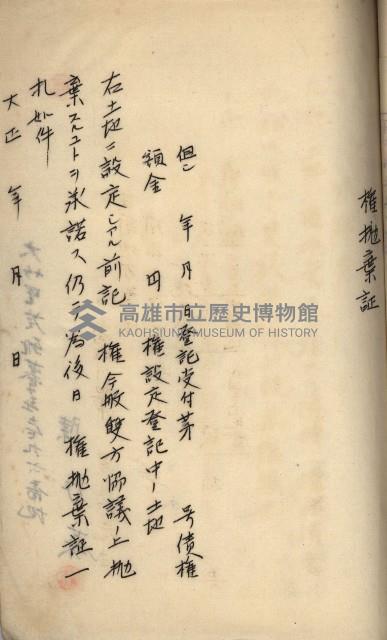 権抛棄証
但シ 年 月 日登記受付第 号債権
額金 円 権設定登記中ノ土地
右土地ニ設定シタル前記 権今般雙方協議ノ上抛
棄スルコトヲ承諾ス仍テ為後日 権抛棄証一
札如件
大正 年 月 日
高雄市立歷史博物館
KAOHSIUNG MUSEUM OF HISTORY